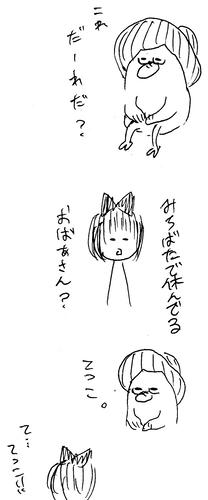 これ
だーれだ？
みちばたで休んでる
おばあさん？
てつこ。
て…
てつこ!!